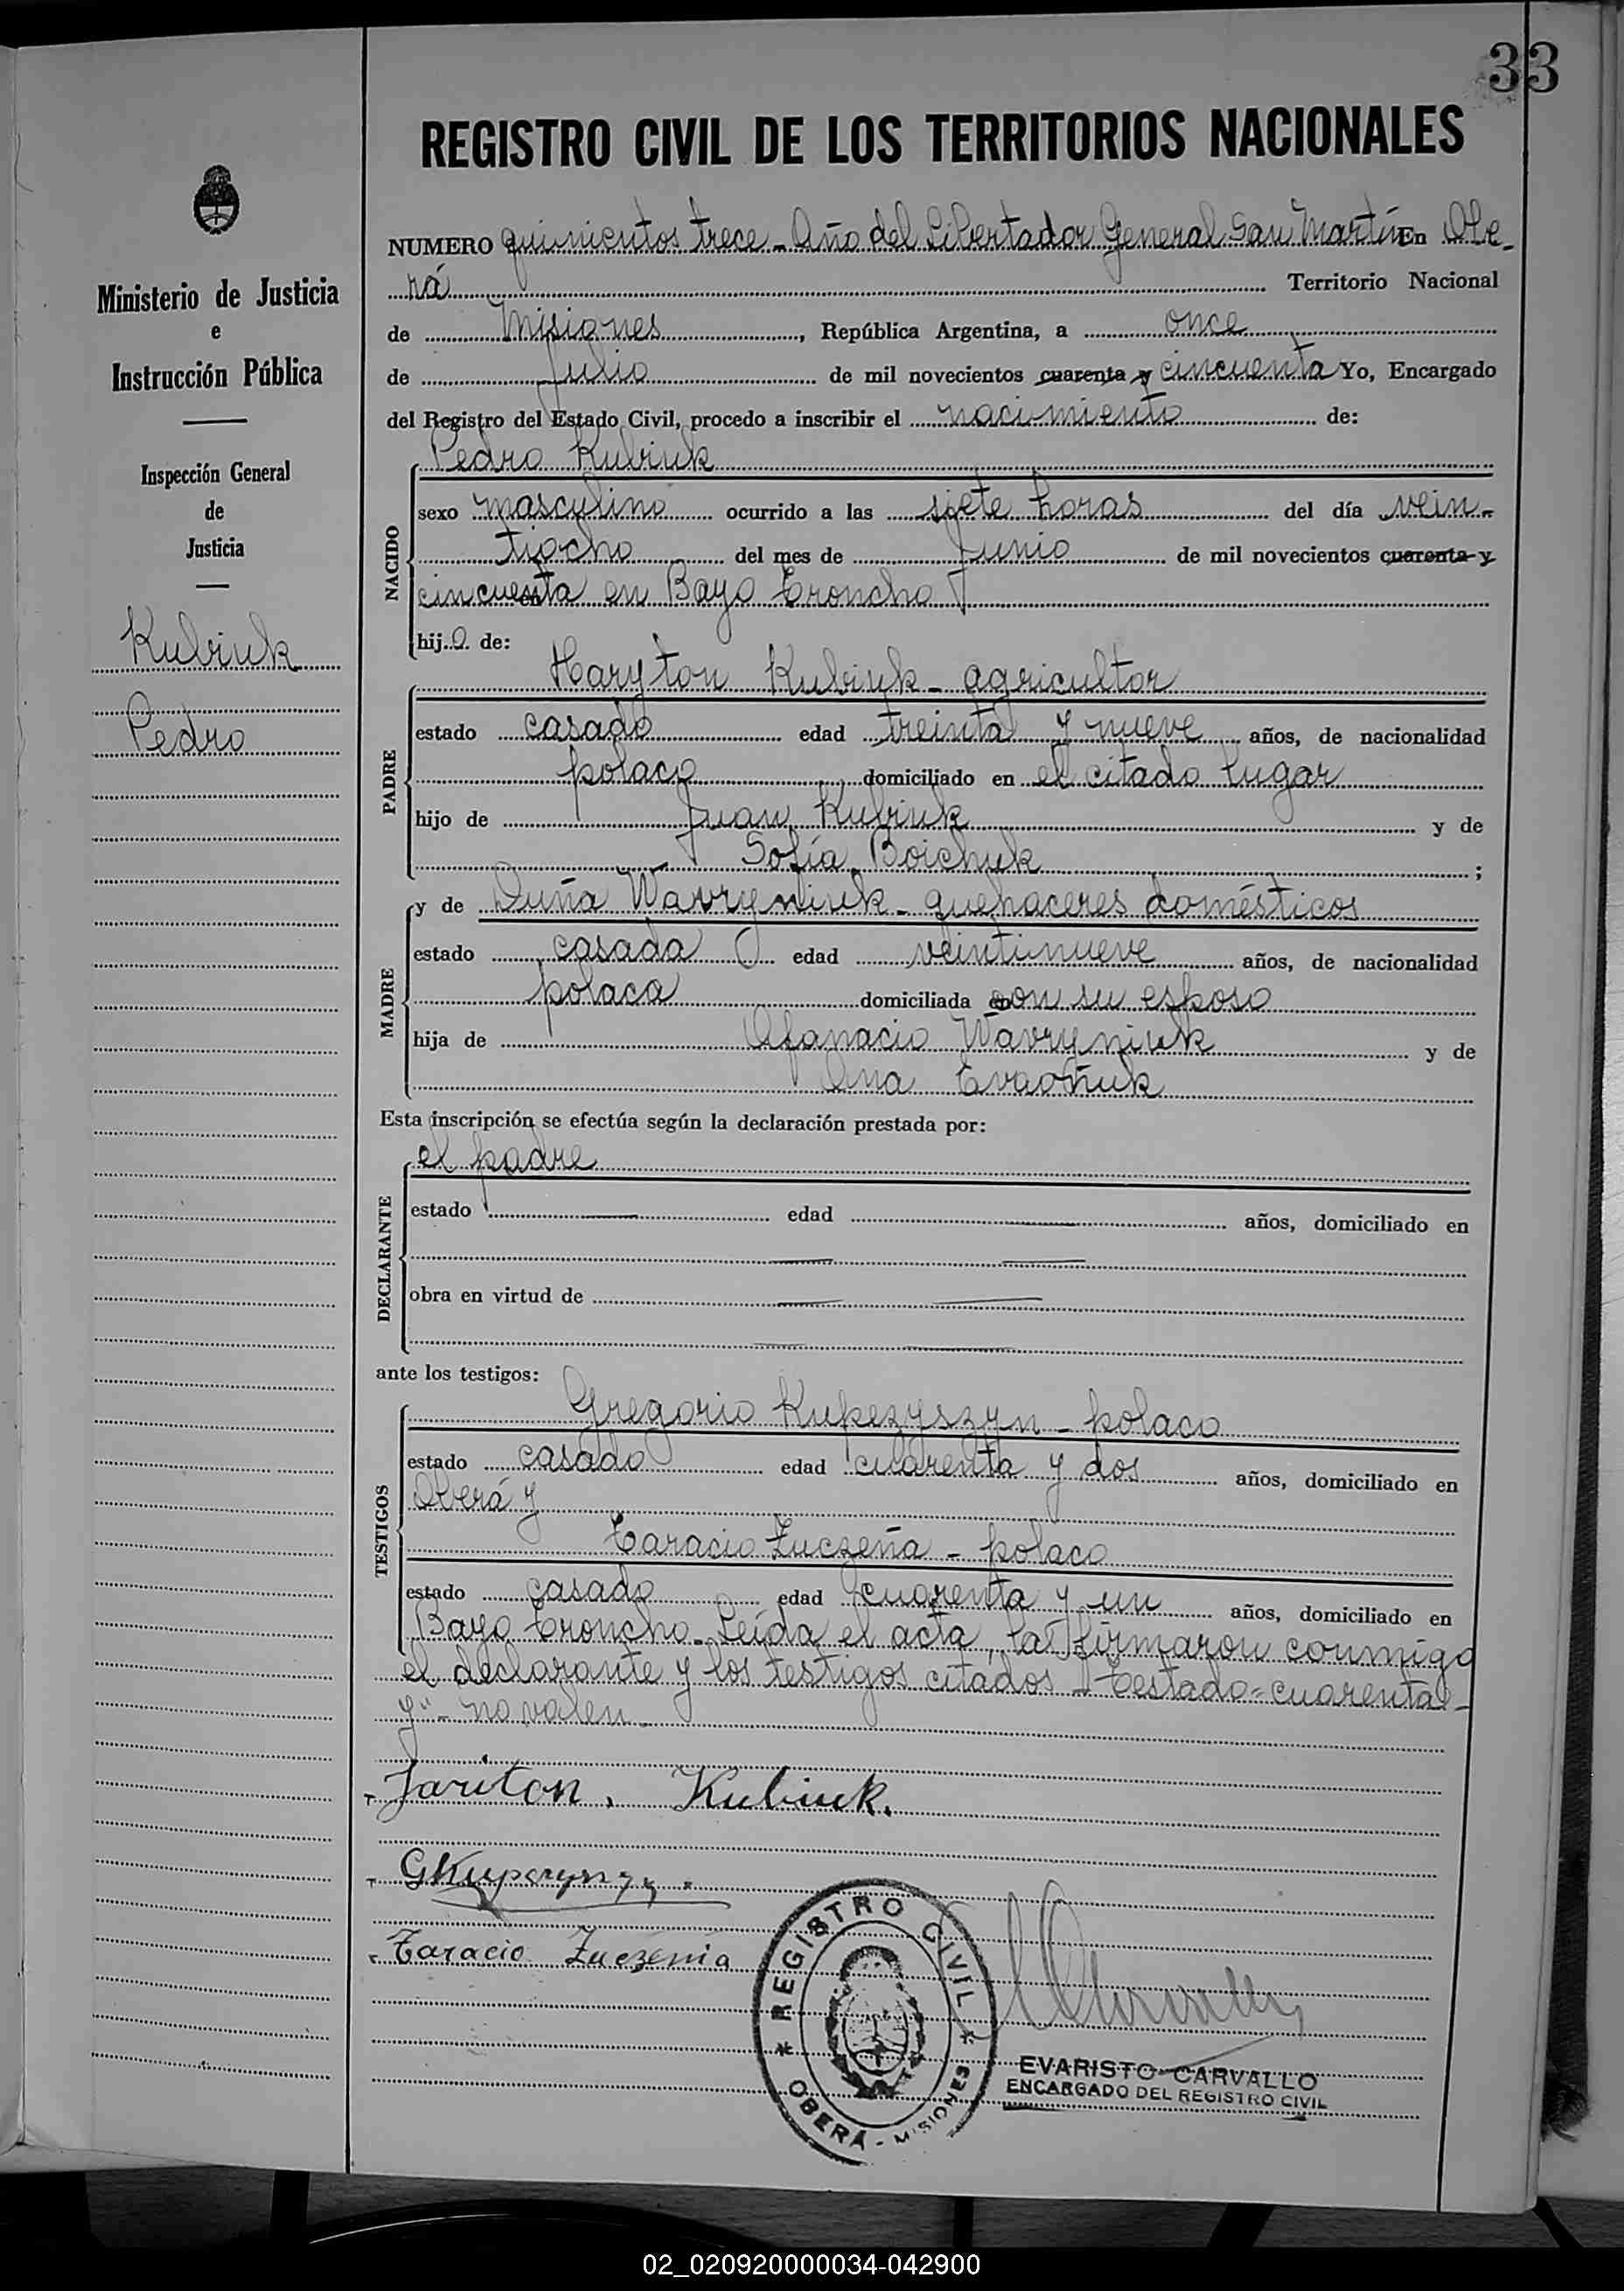 33
REGISTRO CIVIL DE LOS TERRITORIOS NACIONALES
Ministerio de Justicia
e
Instrucción Pública
Inspección General
de
Justicia
Kubiuk
Pedro
NUMERO quinientos trece - Año del Libertador General San Martín En Obe-
rá Territorio Nacional
de Misiones, República Argentina, a once
de Julio de mil novecientos cuarenta y cincuenta Yo, Encargado
del Registro del Estado Civil, procedo a inscribir el nacimiento de:
NACIDO
Pedro Kubiuk
sexo masculino ocurrido a las siete horas del día vein-
tiocho del mes de Junio de mil novecientos cuarenta y
cincuenta en Bayo Troncho
hijo de:
PADRE
Haryton Kubiuk - agricultor
estado casado edad treinta y nueve años, de nacionalidad
polaco domiciliado en el citado lugar
hijo de Juan Kubiuk y de
Sofía Boichuk ;
MADRE
y de Duña Wavryniuk - quehaceres domésticos
estado casada edad veintinueve años, de nacionalidad
polaca domiciliada en con su esposo
hija de Afanacio Wavryniuk y de
Ana
Esta inscripción se efectúa según la declaración prestada por:
DECLARANTE
el padre
estado edad años, domiciliado en
obra en virtud de
ante los testigos:
TESTIGOS
Gregorio Kupezyszyn - polaco
estado casado edad cuarenta y dos años, domiciliado en
Oberá y
Taracio Zuczeña - polaco
estado casado edad cuarenta y un años, domiciliado en
Bayo Troncho. Leída el acta, la firmaron conmigo
el declarante y los testigos citados - Testado = cuarenta -
y" - no valen.
Jariton. Kubiuk.
Taracio Zuczenia
REGISTRO CIVIL
OBERÁ - MISIONES
EVARISTO CARVALLO
ENCARGADO DEL REGISTRO CIVIL
02_020920000034-042900